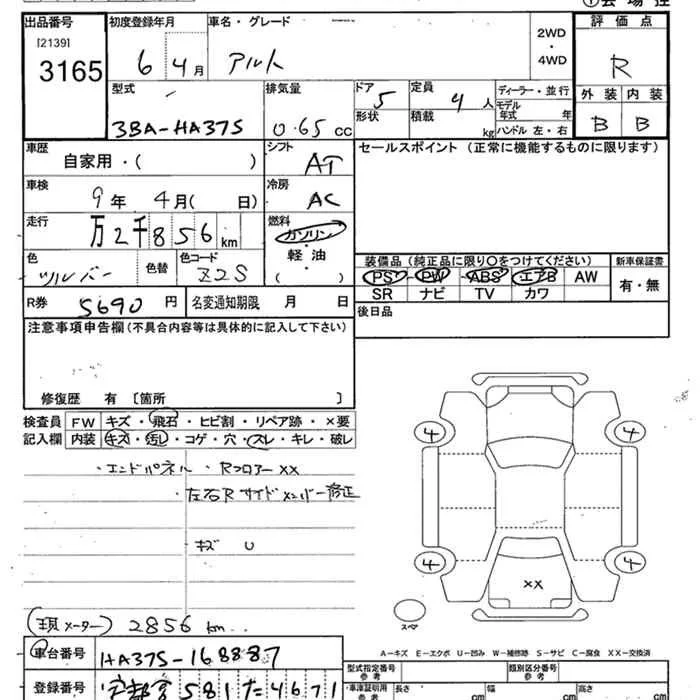 ①会場控
出品番号 初度登録年月 車名・グレード 2WD・4WD 評価点
[2139]
3165 6 4月 アルト R
型式 排気量 ドア 5 定員 4人 ディーラー・並行 外装 内装
3BA-HA37S 0.65 CC 形状 積載 kg モデル年式 年 ハンドル 左・右 B B
車歴 自家用・( ) シフト AT セールスポイント (正常に機能するものに限ります)
車検 9年 4月( 日) 冷房 AC
走行 万2千856km 燃料 ガソリン・軽油 ( )
色 シルバー 色替 色コード Z2S
装備品 (純正品に限り○をつけてください) 新車保証書
PS PW ABS エアB AW 有・無
SR ナビ TV カワ
R券 5690円 名変通知期限 月 日 後日品
注意事項申告欄(不具合内容等は具体的に記入して下さい)
修復歴 有 〔箇所 〕
検査員 FW キズ・飛石・ヒビ割・リペア跡・×要
記入欄 内装 キズ・汚レ・コゲ・穴・スレ・キレ・破レ
・エンドパネル・Rフロアー XX
・左右Rサイドメンバー修正
キズ U
4 4
4 4
XX
スペア
(現メーター) 2856 km
A-キズ E-エクボ U-凹み W-補修跡 S-サビ C-腐食 XX-交換済
車台番号 HA37S-168887
型式指定番号 参考 類別区分番号 参考
登録番号 宇都宮581た4671
車庫証明用 参考 長さ cm 幅 cm 高さ cm